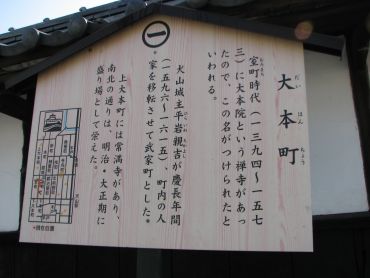 大本町
だいほんちょう
室町時代（一三九四〜一五七
三）に大本院という禅寺があっ
たので、この名がつけられたと
いわれる。
犬山城主平岩親吉が慶長年間
（一五九六〜一六一五）、町内の人
家を移転させて武家町とした。
上大本町には常満寺があり、
南北の通りは、明治・大正期に
盛り場として栄えた。
現在位置